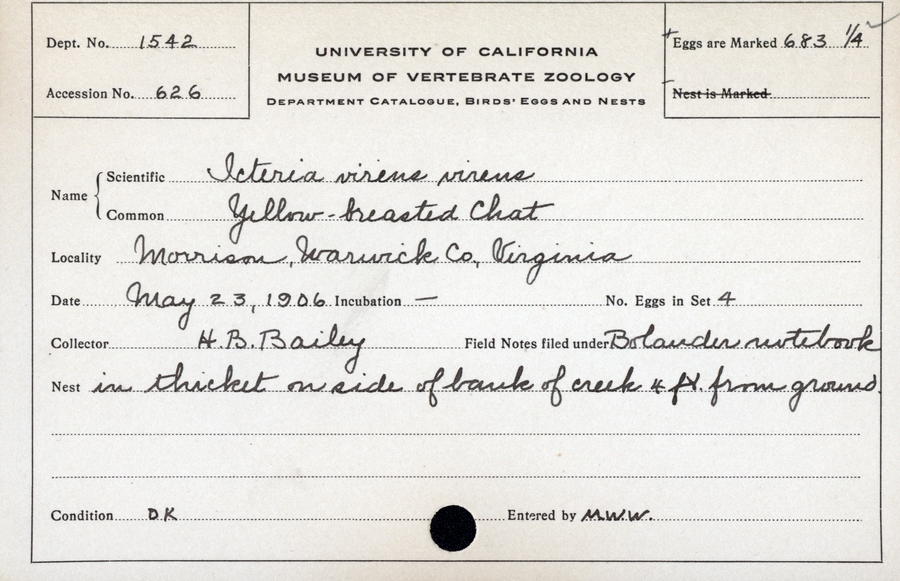 Dept. No. 1542
Accession No. 626
UNIVERSITY OF CALIFORNIA
MUSEUM OF VERTEBRATE ZOOLOGY
DEPARTMENT CATALOGUE, BIRDS' EGGS AND NESTS
Eggs are Marked 683 1/4
Nest is Marked
Name
Scientific Icteria virens virens
Common Yellow-breasted Chat
Locality Morrison, Warwick Co., Virginia
Date May 23, 1906 Incubation — No. Eggs in Set 4
Collector H. B. Bailey Field Notes filed under Bolander notebook
Nest in thicket on side of bank of creek 4 ft. from ground.
Condition OK Entered by M.W.W.